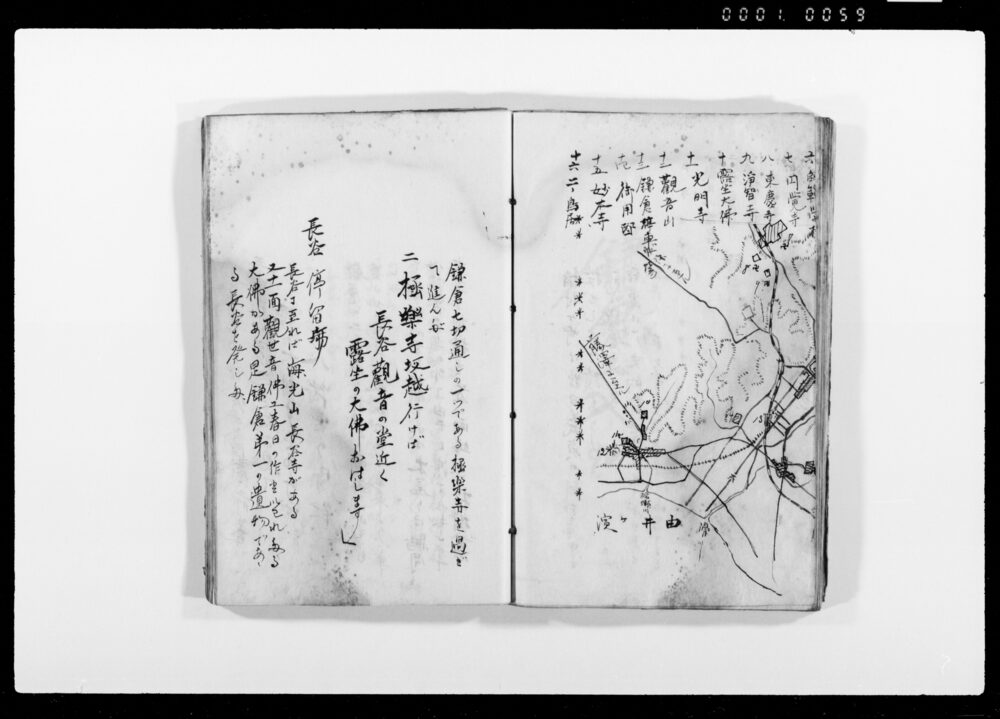 0001 0059
七 円覚寺
八 東慶寺
九 浄智寺
十 露坐大佛
十一 光明寺
十二 觀音山
十三 鎌倉停車場
御用邸
十五 妙本寺
十六 二ノ鳥居
由井ヶ濱
鎌倉七切通しの一つである極樂寺を過ぎ
て進んが
二 極樂寺坂越行けば
長谷觀音の堂近く
露坐の大佛おはします
長谷停留場
長谷に至れば海光山長谷寺がある
又十一面觀世音佛工春日の作と
大佛がある是鎌倉第一の遺物であ
る長谷を發した